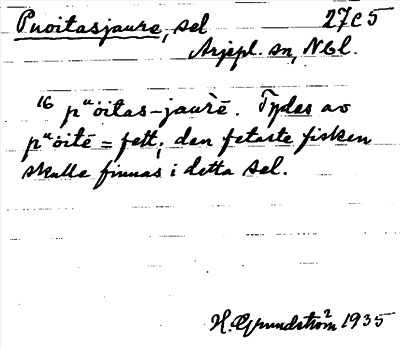 Puoitasjaure, sel 27C5
Arjepl. sn, Nbl.
16 pᵘöitas-jaurē. Tydes av
pᵘöitē = fett; den fetaste fisken
skulle finnas i detta sel.
H. Grundström 1935